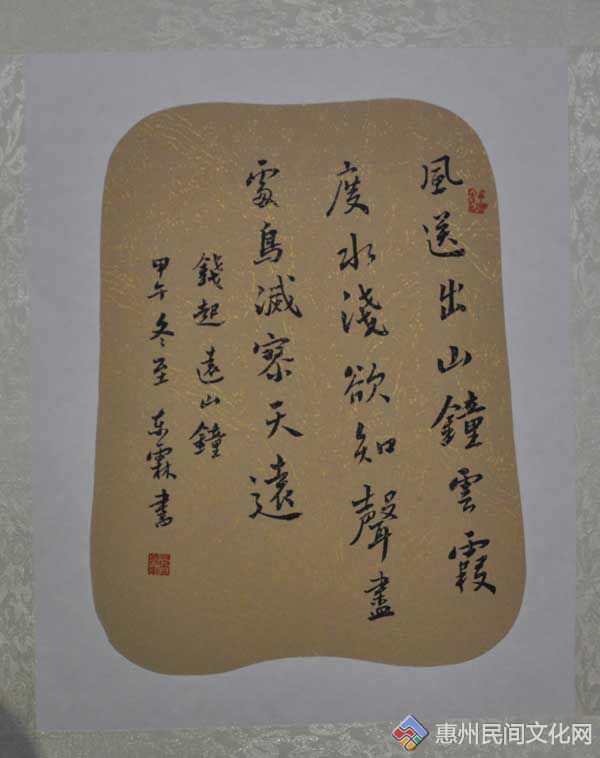 風送出山鐘雲霞
度水淺欲知聲盡
處鳥滅寥天遠
錢起 遠山鐘
甲午冬至 东霖書
惠州民间文化网